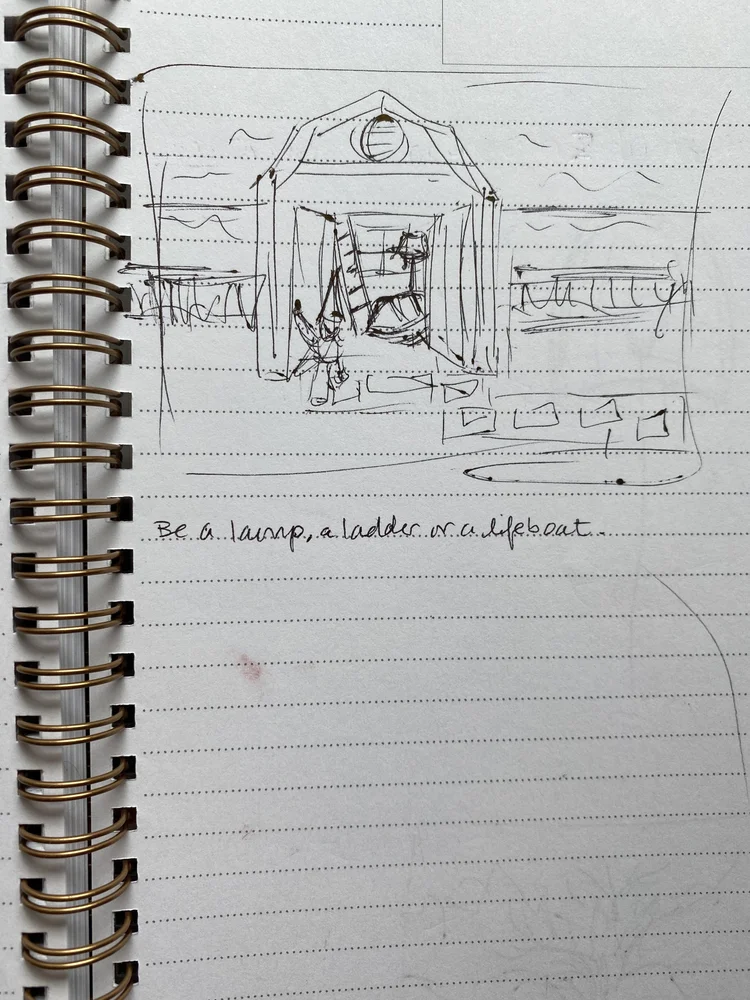 Be a lamp, a ladder or a lifeboat.